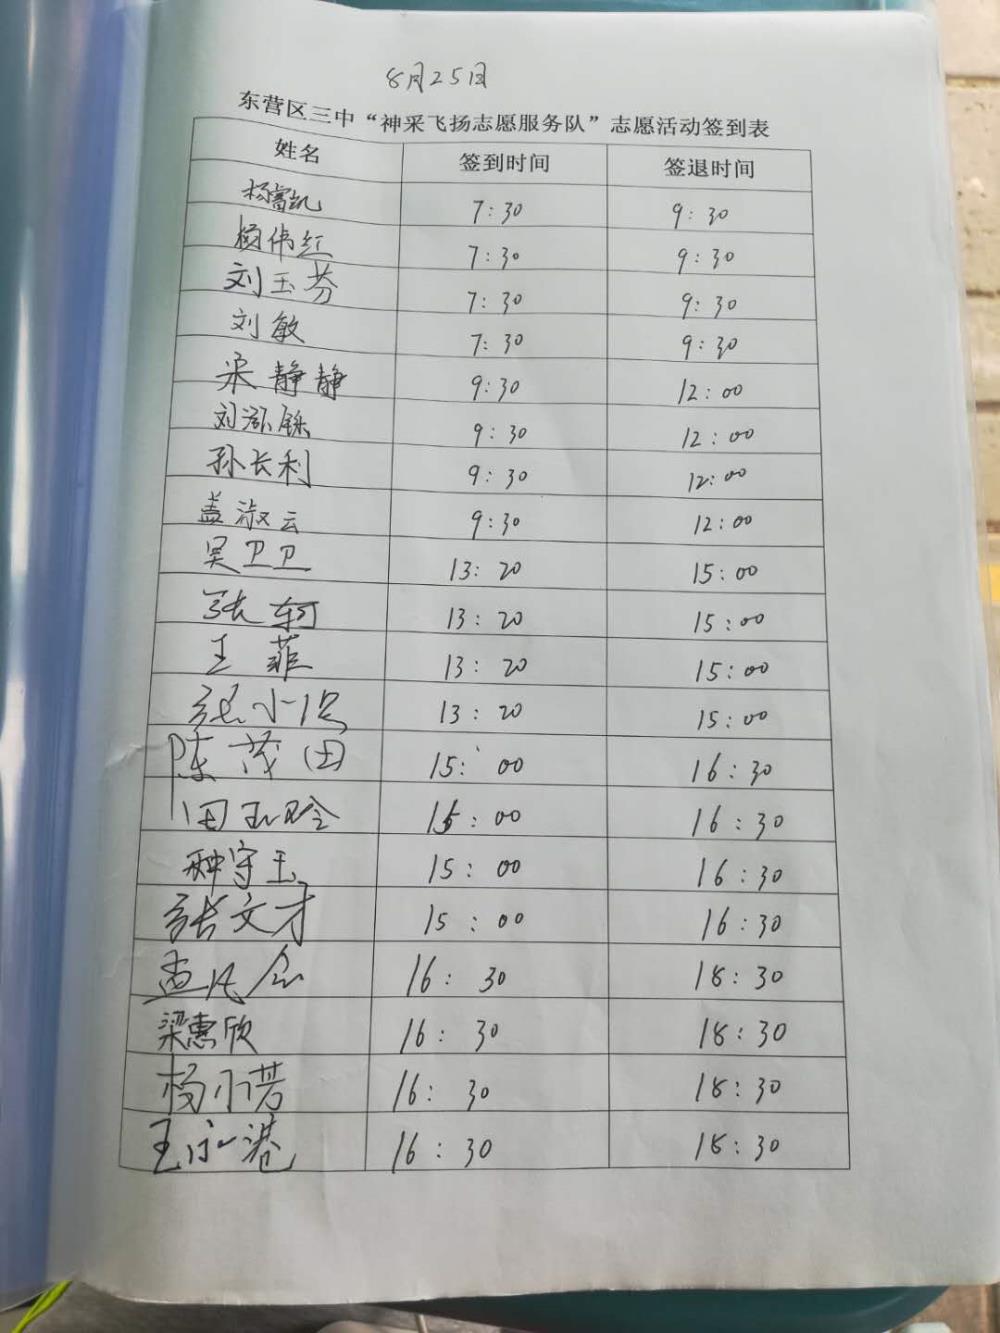 8月25日
东营区三中“神采飞扬志愿服务队”志愿活动签到表
姓名 签到时间 签退时间
杨富凯 7:30 9:30
杨伟红 7:30 9:30
刘玉芬 7:30 9:30
刘敏 7:30 9:30
宋静静 9:30 12:00
刘泓铄 9:30 12:00
孙长利 9:30 12:00
盖淑云 9:30 12:00
吴卫卫 13:20 15:00
张轲 13:20 15:00
王菲 13:20 15:00
张小 13:20 15:00
陈茂田 15:00 16:30
田玉玲 15:00 16:30
种守玉 15:00 16:30
张文才 15:00 16:30
孟凡 16:30 18:30
梁惠欣 16:30 18:30
杨小芳 16:30 18:30
王永港 16:30 18:30